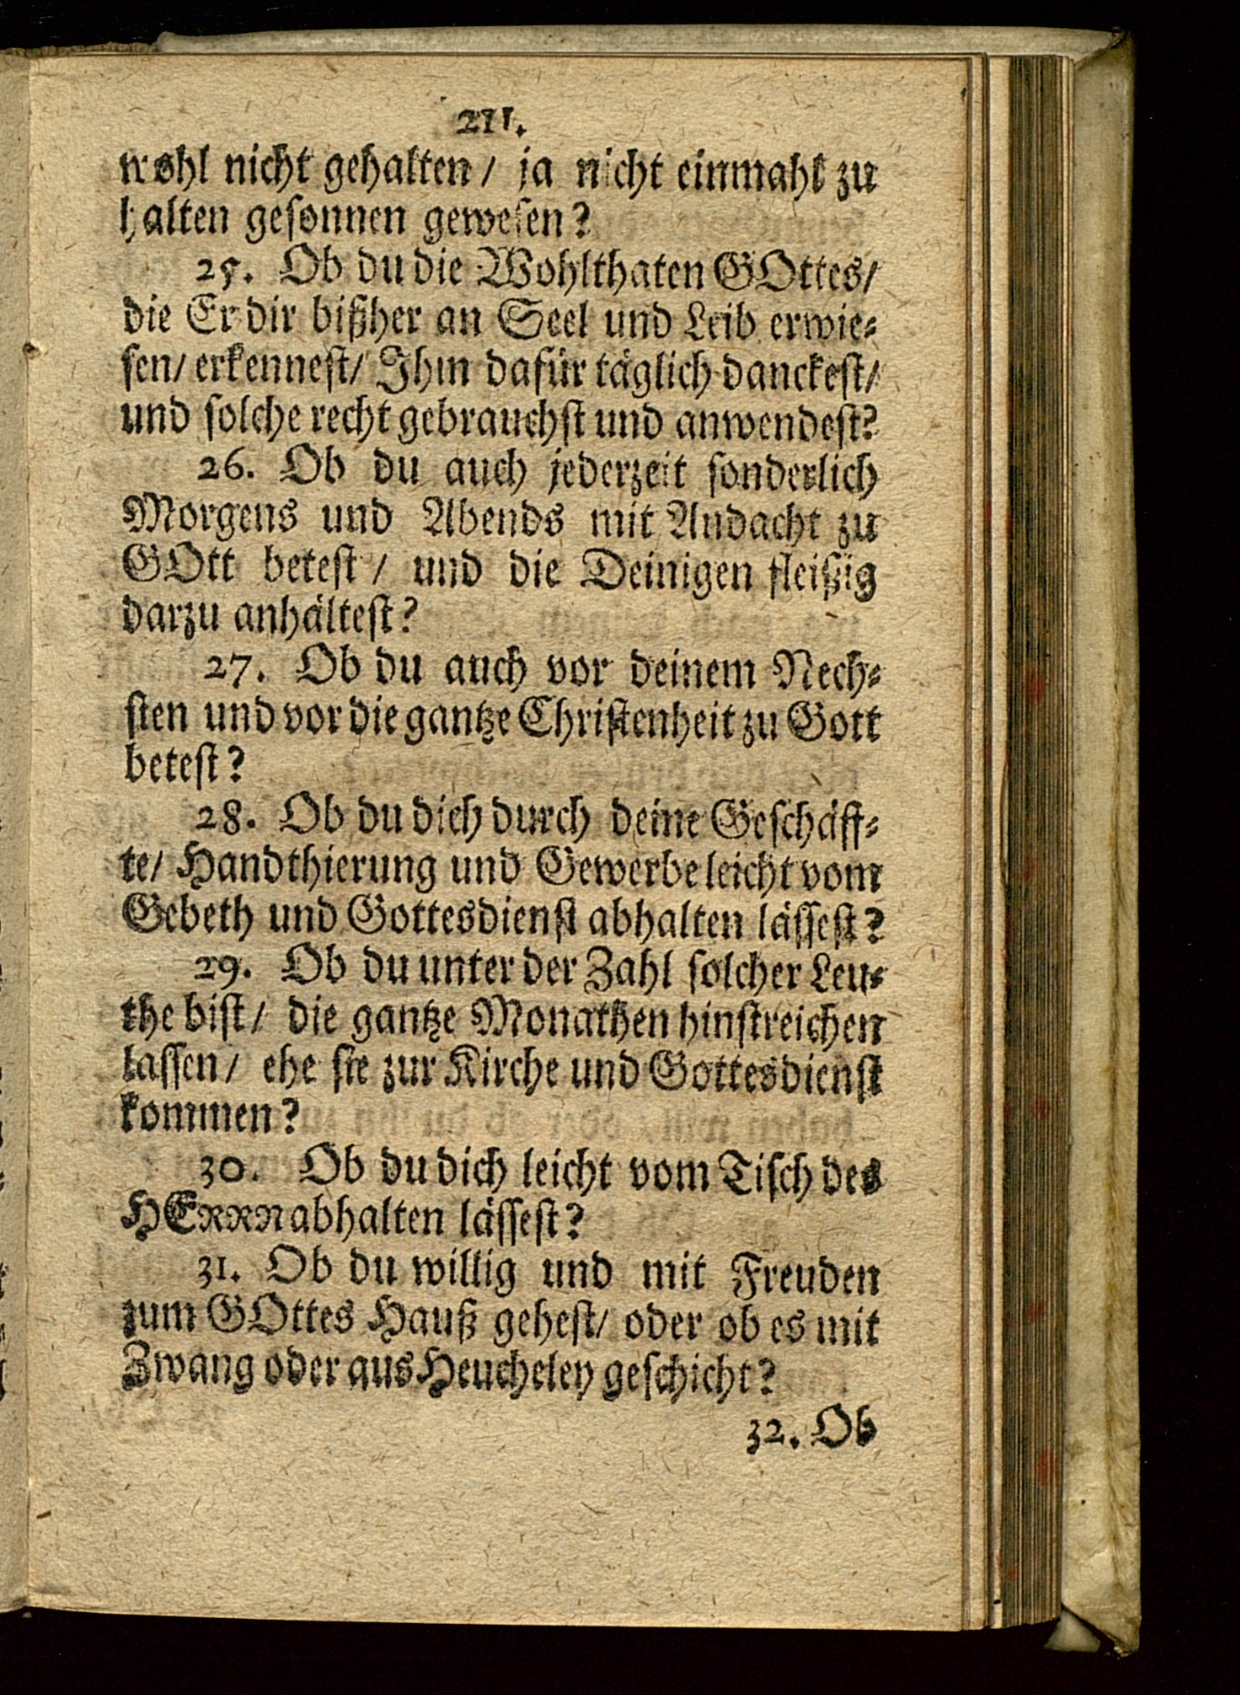 211.
wohl nicht gehalten / ja nicht einmahl zu
halten gesonnen gewesen?
25. Ob du die Wohlthaten GOttes/
die Er dir bißher an Seel und Leib erwie-
sen/ erkennest/ Ihm dafür täglich danckest/
und solche recht gebrauchst und anwendest?
26. Ob du auch jederzeit sonderlich
Morgens und Abends mit Andacht zu
GOtt betest / und die Deinigen fleißig
darzu anhältest?
27. Ob du auch vor deinem Nech-
sten und vor die gantze Christenheit zu Gott
betest?
28. Ob du dich durch deine Geschäff-
te/ Handthierung und Gewerbe leicht vom
Gebeth und Gottesdienst abhalten lässest?
29. Ob du unter der Zahl solcher Leu-
the bist/ die gantze Monathen hinstreichen
lassen/ ehe sie zur Kirche und Gottesdienst
kommen?
30. Ob du dich leicht vom Tisch des
HERRN abhalten lässest?
31. Ob du willig und mit Freuden
zum GOttes Hauß gehest/ oder ob es mit
Zwang oder aus Heucheley geschicht?
32. Ob